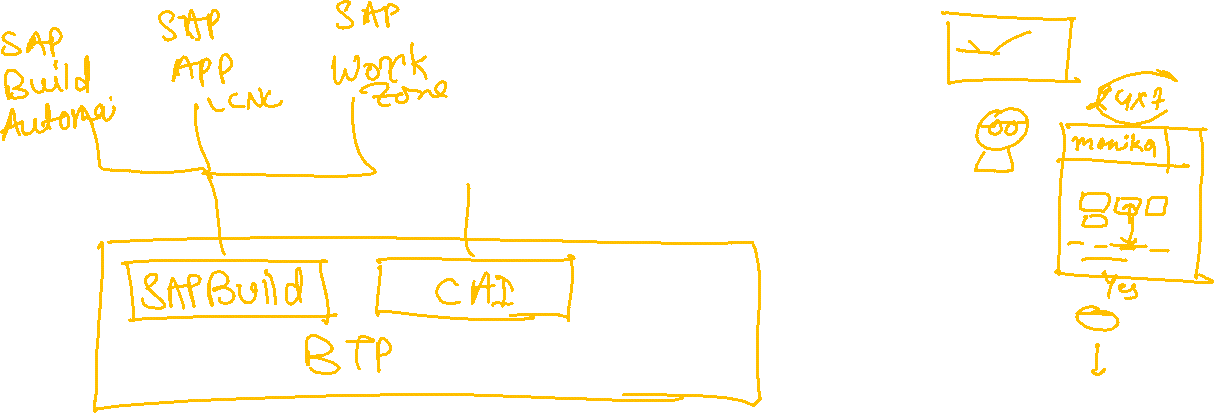 SAP
Build
Automa
SAP
APP
LCNC
SAP
Work
Zone
SAP Build
CAI
BTP
24x7
monika
Yes